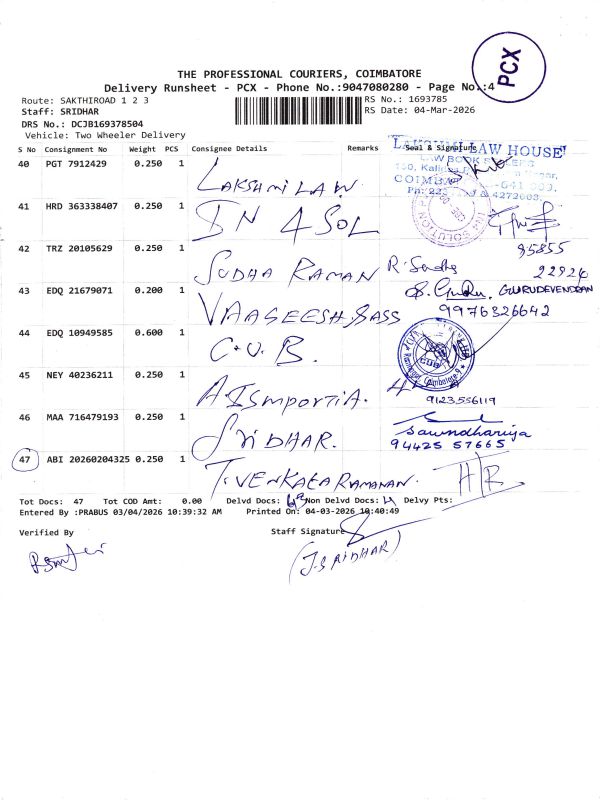 PCX
THE PROFESSIONAL COURIERS, COIMBATORE
Delivery Runsheet - PCX - Phone No.:9047080280 - Page No.:4
Route: SAKTHIROAD 1 2 3
RS No.: 1693785
Staff: SRIDHAR
RS Date: 04-Mar-2026
DRS No.: DCJB169378504
Vehicle: Two Wheeler Delivery
S No Consignment No Weight PCS Consignee Details Remarks Seal & Signature
LAW HOUSE
40 PGT 7912429 0.250 1 LAKSHMI LAW
41 HRD 363338407 0.250 1 IN 4 SOL
95855
22924
42 TRZ 20105629 0.250 1 SUDHA RAMAN
43 EDQ 21679071 0.200 1 VAAGEESH SASS GURUDEVENDRAN
9976326642
44 EDQ 10949585 0.600 1 C.U.B.
45 NEY 40236211 0.250 1 A.ISmporTiA.
9123556119
46 MAA 716479193 0.250 1 Sri DHAR. Sawndhariya
94425 57665
47 ABI 20260204325 0.250 1 T.VENKATARAMANAN. H/R
Tot Docs: 47 Tot COD Amt: 0.00 Delvd Docs: 43 Non Delvd Docs: 4 Delvy Pts:
Entered By :PRABUS 03/04/2026 10:39:32 AM Printed On: 04-03-2026 10:40:49
Verified By Staff Signature
(J.SRIDHAR)